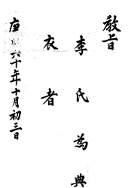 教旨
李氏為典
衣者
康熙六十年十月初三日